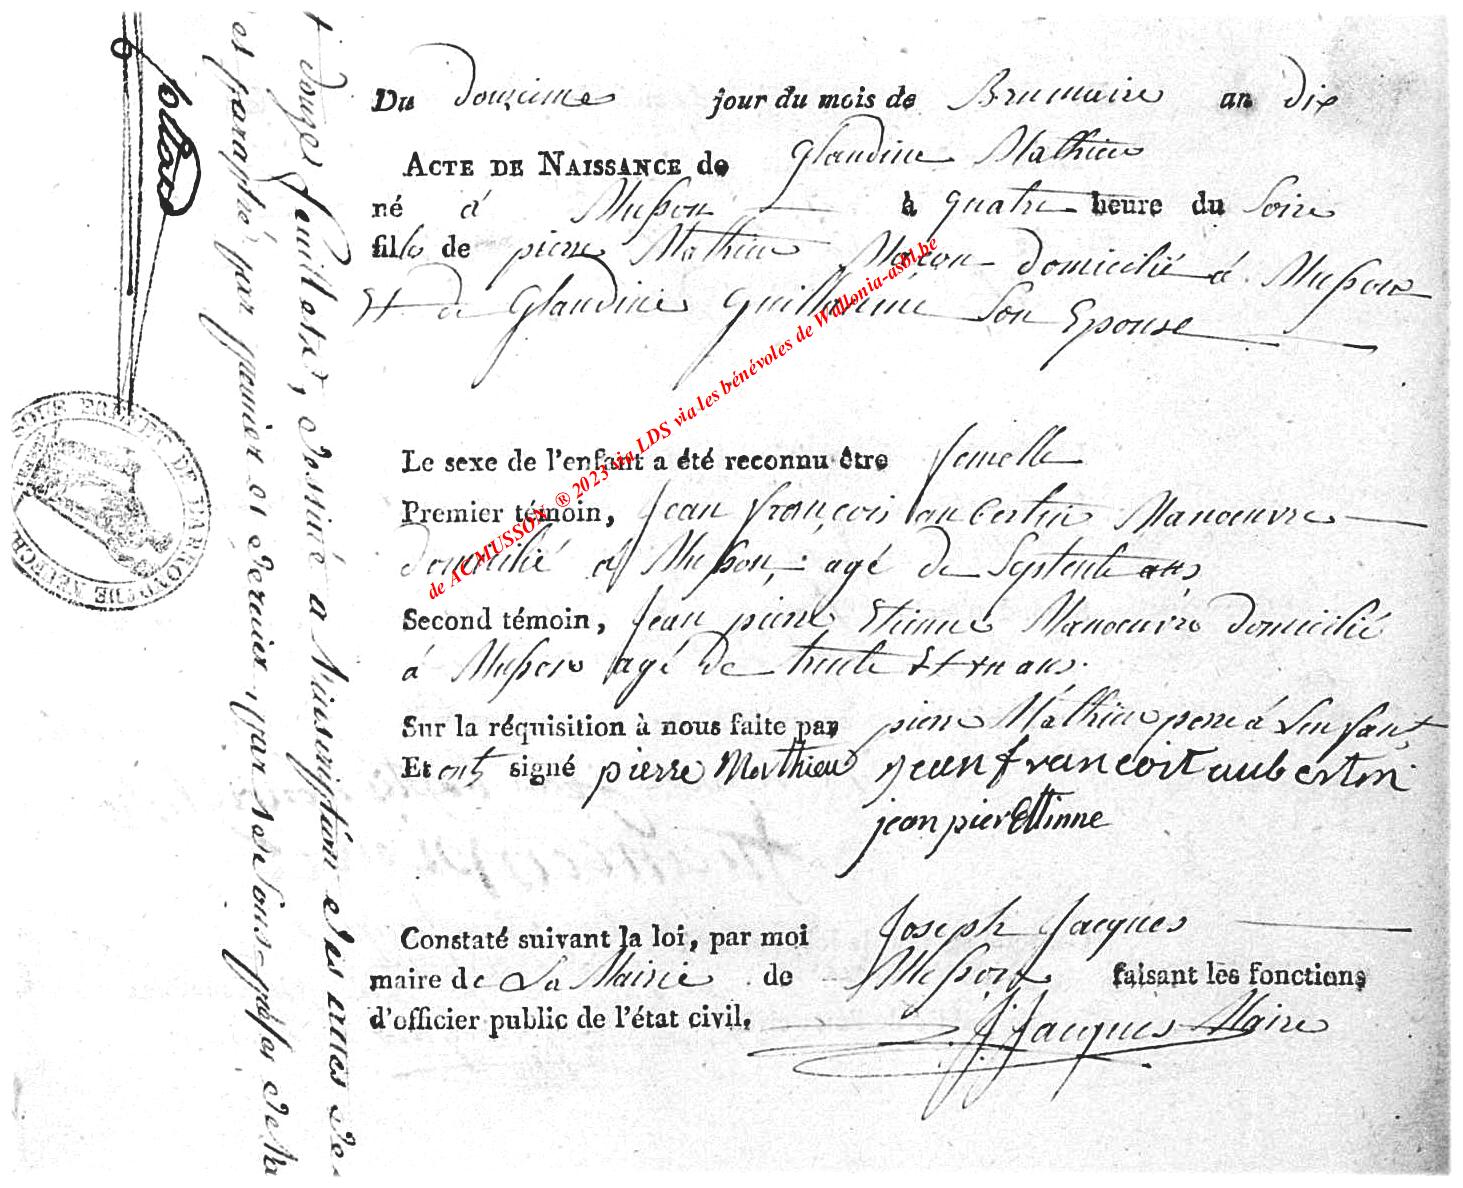 Du douzieme jour du mois de Brumaire an dix
ACTE DE NAISSANCE de Glaudine Mathieu
né á Musson à quatre heure du Soire
fille de pierre Mathieu Maçon domicilié á Musson
Et de Glaudine Guillaume Son Epouse
Le sexe de l'enfant a été reconnu être femelle
Premier témoin, Jean françois aubertin Manoeuvre
domicilié á Musson, agé de Septente ans
Second témoin, Jean pierre Etienne Manoeuvre domicilié
á Musson agé de trente Et un ans.
Sur la réquisition à nous faite par pierre Mathieu pere á Lenfant,
Et ont signé pierre Mathieu jean francoit aubertin
jean pier Ettinne
Constaté suivant la loi, par moi Joseph Jacques
maire de La Mairie de Musson faisant les fonctions
d'officier public de l'état civil.
J. Jacques Maire
de ACMUSSON ® 2023 via LDS via les bénévoles de Wallonia-asbl.be
feuillets, destiné a l'inscription des actes de
et paraphé par premier et dernier, par nous Sous-prefet de
SOUS PREFET DE L'ARRON